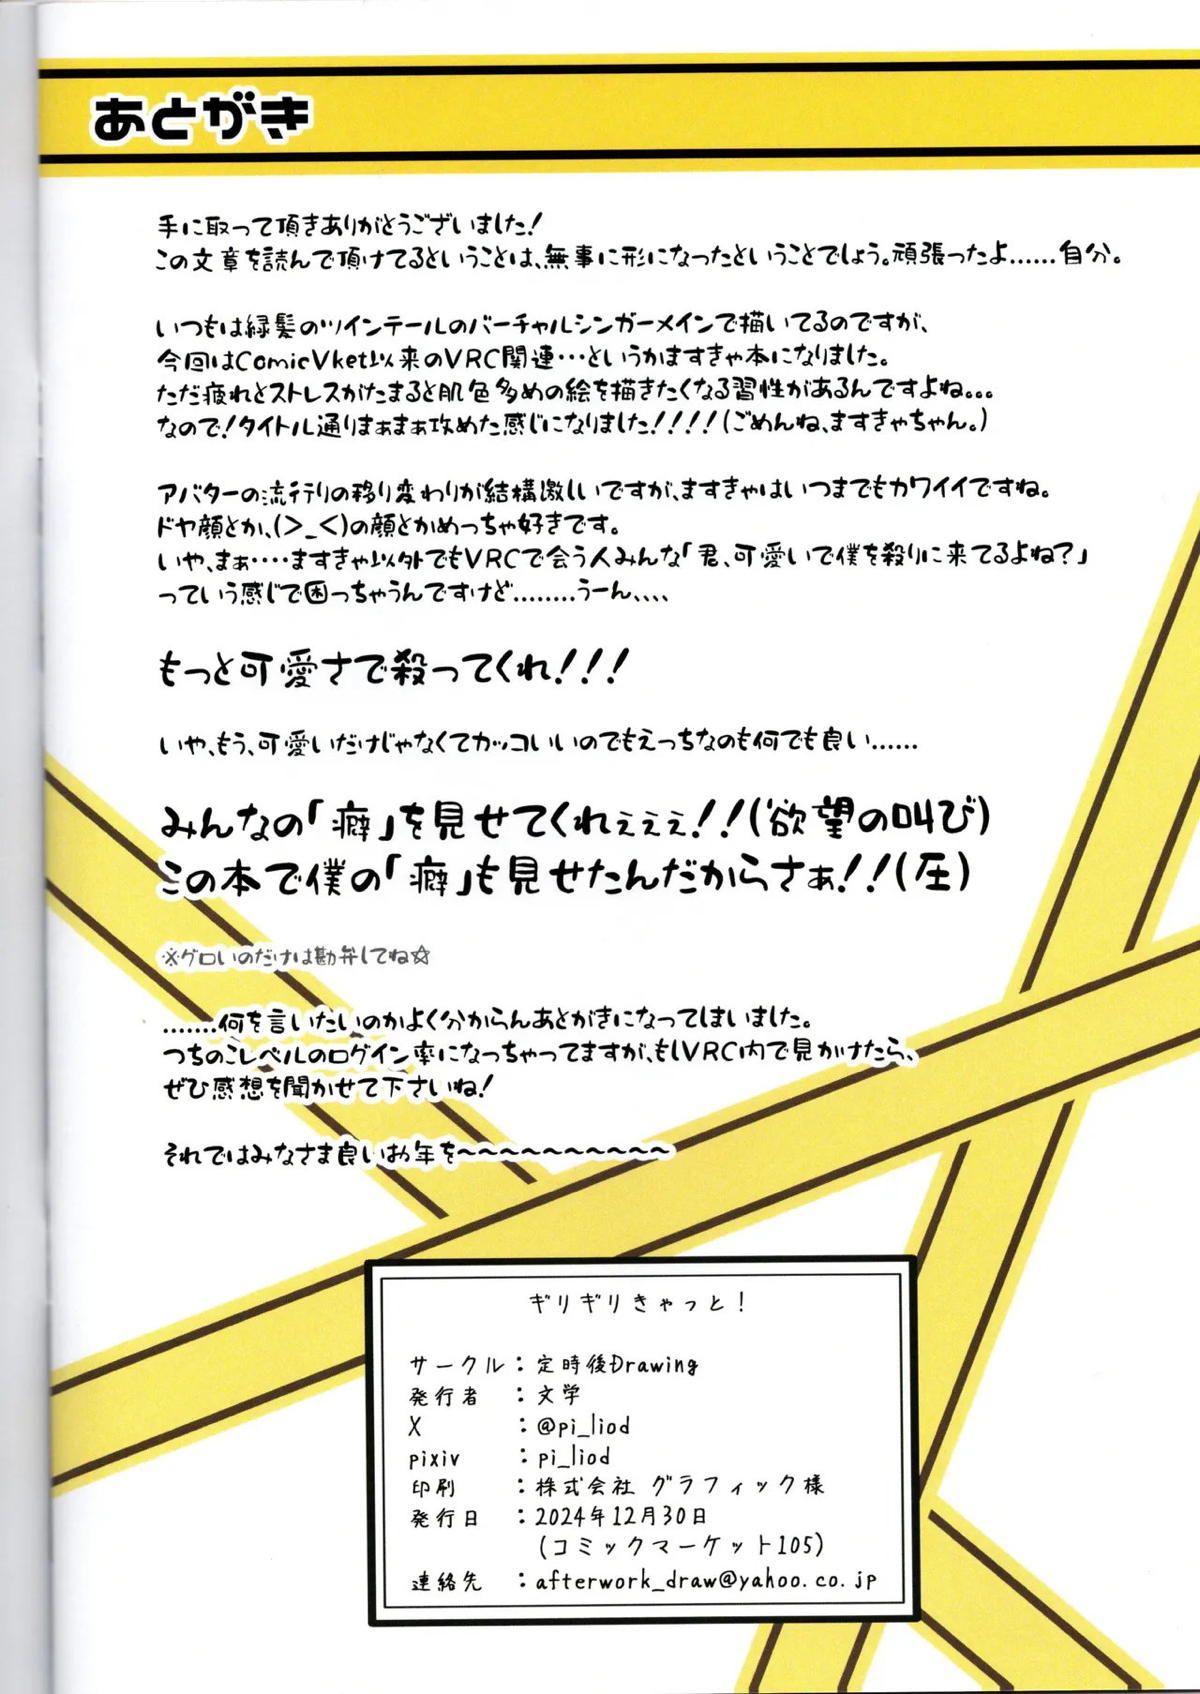 あとがき
手に取って頂きありがとうございました!
この文章を読んで頂けてるということは、無事に形になったということでしょう。頑張ったよ……自分。
いつもは緑髪のツインテールのバーチャルシンガーメインで描いてるのですが、
今回はComicVket以来のVRC関連…というかますきゃ本になりました。
ただ疲れとストレスがたまると肌色多めの絵を描きたくなる習性があるんですよね。。。
なので!タイトル通りまぁまぁ攻めた感じになりました!!!!(ごめんね、ますきゃちゃん。)
アバターの流行りの移り変わりが結構激しいですが、ますきゃはいつまでもカワイイですね。
ドヤ顔とか、(>_<)の顔とかめっちゃ好きです。
いや、まぁ‥‥ますきゃ以外でもVRCで会う人みんな「君、可愛いで僕を殺りに来てるよね?」
っていう感じで困っちゃうんですけど........うーん、、、、
もっと可愛さで殺ってくれ!!!
いや、もう、可愛いだけじゃなくてカッコいいのでもえっちなのも何でも良い……
みんなの「癖」を見せてくれぇぇぇ!!(欲望の叫び)
この本で僕の「癖」も見せたんだからさぁ!!(圧)
※グロいのだけは勘弁してね☆
.......何を言いたいのかよく分からんあとがきになってしまいました。
つちのこレベルのログイン率になっちゃってますが、もしVRC内で見かけたら、
ぜひ感想を聞かせて下さいね!
それではみなさま良いお年を~~~~~~~~~~
ギリギリきゃっと!
サークル:定時後Drawing
発行者:文学
X:@pi_liod
pixiv:pi_liod
印刷:株式会社 グラフィック様
発行日:2024年12月30日
(コミックマーケット105)
連絡先:afterwork_draw@yahoo.co.jp